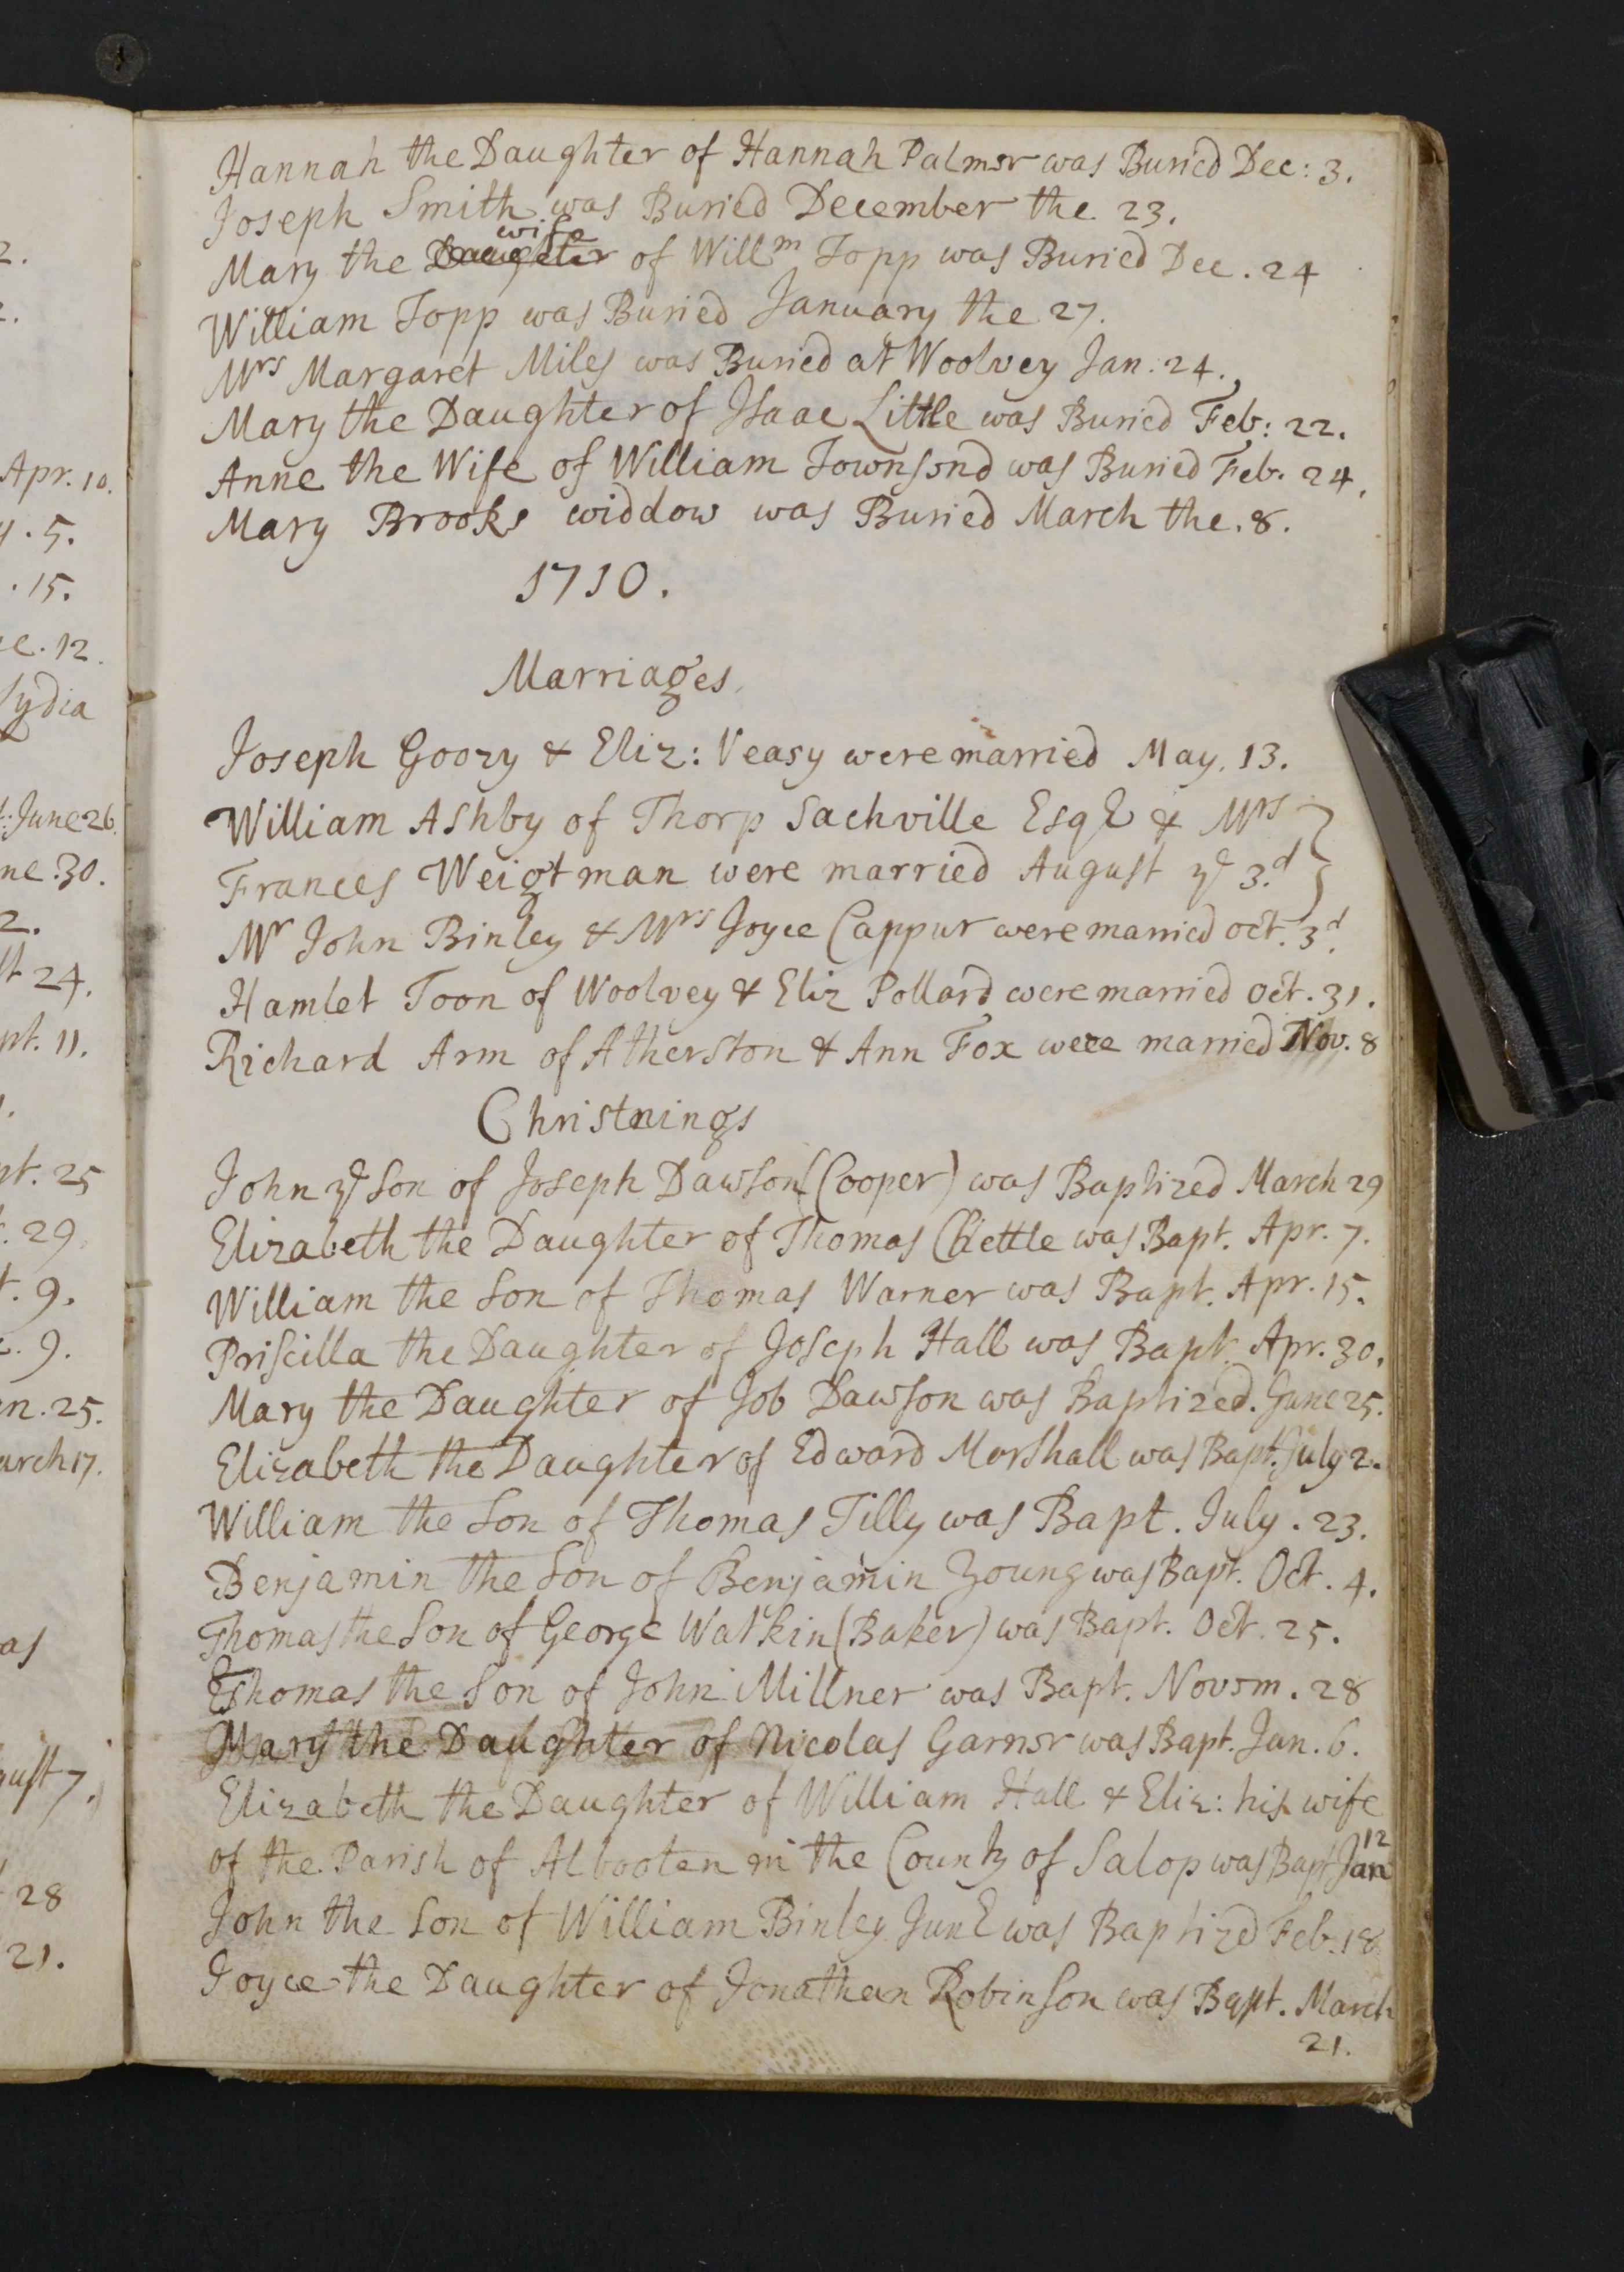 Hannah the Daughter of Hannah Palmer was Buried Dec: 3.
Joseph Smith was Buried December the 23.
wife
Mary the Daughter of Willm Topp was Buried Dec. 24
William Topp was Buried January the 27.
Mrs Margaret Miles was Buried at Woolvey Jan: 24.
Mary the Daughter of Isaac Little was Buried Feb: 22.
Anne the Wife of William Townsend was Buried Feb. 24.
Mary Brooks widdow was Buried March the. 8.
1710.
Marriages
Joseph Goozy & Eliz: Veasy were married May. 13.
William Ashby of Thorp Sachville Esqr & Mrs
Frances Weigtman were married August ye 3.d
Mr John Binley & Mrs Joyce Cappur were married Oct. 3d.
Hamlet Toon of Woolvey & Eliz Pollard were married Oct. 31.
Richard Arm of Atherston & Ann Fox were married Nov. 8
Christnings
John ye Son of Joseph Dawson (Cooper) was Baptized March 29
Elizabeth the Daughter of Thomas Chettle was Bapt. Apr. 7.
William the Son of Thomas Warner was Bapt. Apr. 15.
Priscilla the Daughter of Joseph Hall was Bapt. Apr. 30.
Mary the Daughter of Job Dawson was Baptized. June 25.
Elizabeth the Daughter of Edward Marshall was Bapt. July 2.
William the Son of Thomas Tilly was Bapt. July. 23.
Benjamin the Son of Benjamin Young was Bapt. Oct. 4.
Thomas the Son of George Watkin (Baker) was Bapt. Oct. 25.
Thomas the Son of John Millner was Bapt. Novem. 28
Mary the Daughter of Nicolas Garner was Bapt. Jan. 6.
Elizabeth the Daughter of William Hall & Eliz: his wife
of the Parish of Albooten in the County of Salop was Bapt Jan 12
John the Son of William Binley Junr was Baptizd Feb. 18
Joyce the Daughter of Jonathan Robinson was Bapt. March
21.